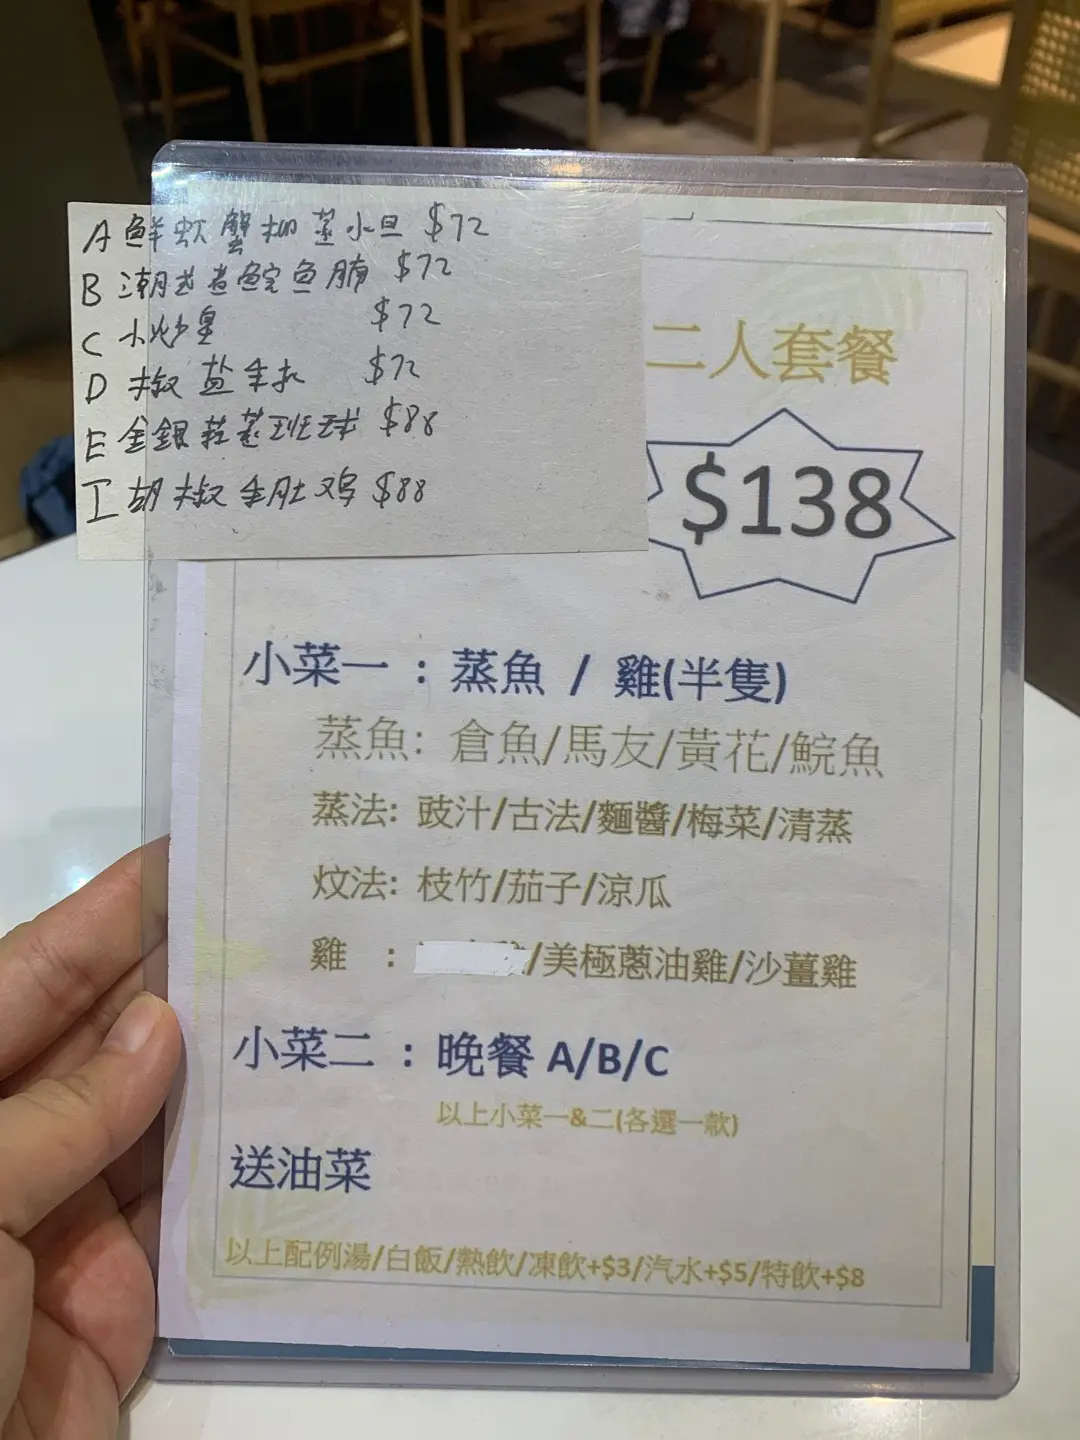 A 鮮虾蟹柳蒸小旦 $72
B 潮式煮鯇魚腩 $72
C 小炒皇 $72
D 椒盐扒 $72
E 金銀蒜蒸班球 $88
胡椒肚鸡 $88
二人套餐
$138
小菜一 : 蒸魚 / 雞(半隻)
蒸魚: 倉魚/馬友/黃花/鯇魚
蒸法: 豉汁/古法/麵醬/梅菜/清蒸
炆法: 枝竹/茄子/涼瓜
雞 : /美極蔥油雞/沙薑雞
小菜二 : 晚餐 A/B/C
以上小菜一&二(各選一款)
送油菜
以上配例湯/白飯/熱飲/凍飲+$3/汽水+$5/特飲+$8